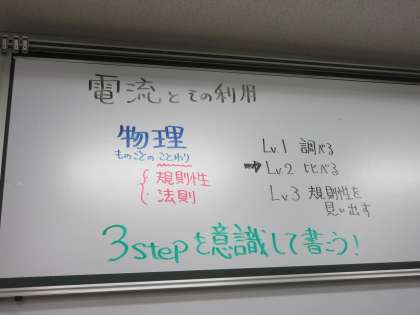 電流とその利用
物理
ものごとのことわり
規則性
法則
Lv.1 調べる
➡Lv.2 比べる
Lv.3 規則性を
見い出す
3stepを意識して書こう!